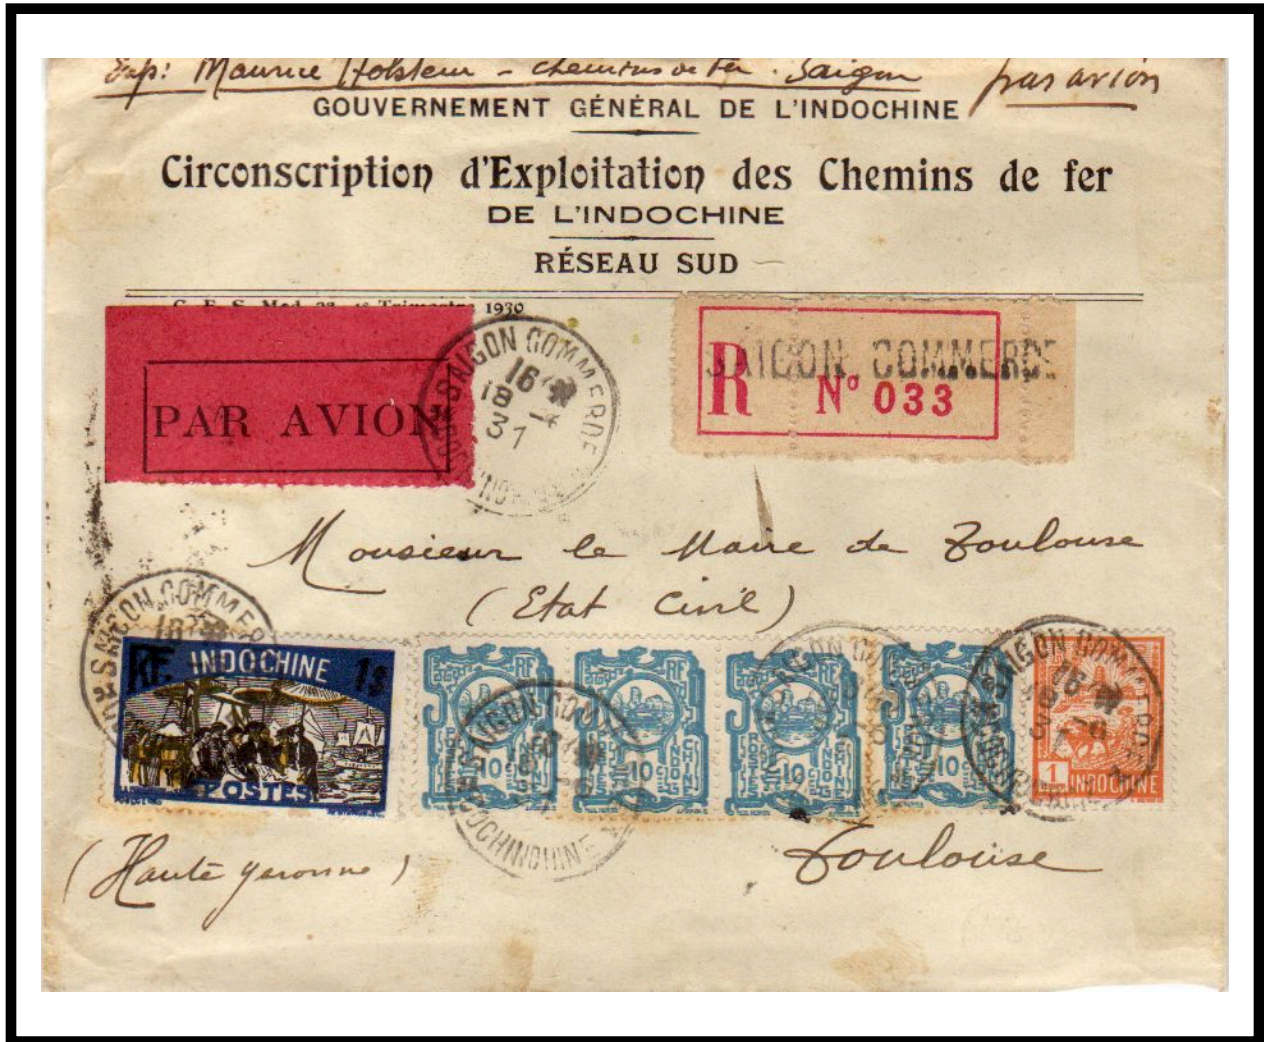 Exp: Maurice Holstein - chemins de fer - Saigon par avion
GOUVERNEMENT GÉNÉRAL DE L'INDOCHINE
Circonscription d'Exploitation des Chemins de fer
DE L'INDOCHINE
RÉSEAU SUD
1930
PAR AVION
SAIGON COMMERCE
16
18 -4
37
SAIGON COMMERCE
R N° 033
Monsieur le Maire de Toulouse
(Etat Civil)
SAIGON COMMERCE
RF INDOCHINE 1$
POSTES
RF
10
RF
10
RF
10
RF
10
SAIGON COMMERCE
COCHINCHINE
1
INDOCHINE
(Haute Garonne)
Toulouse